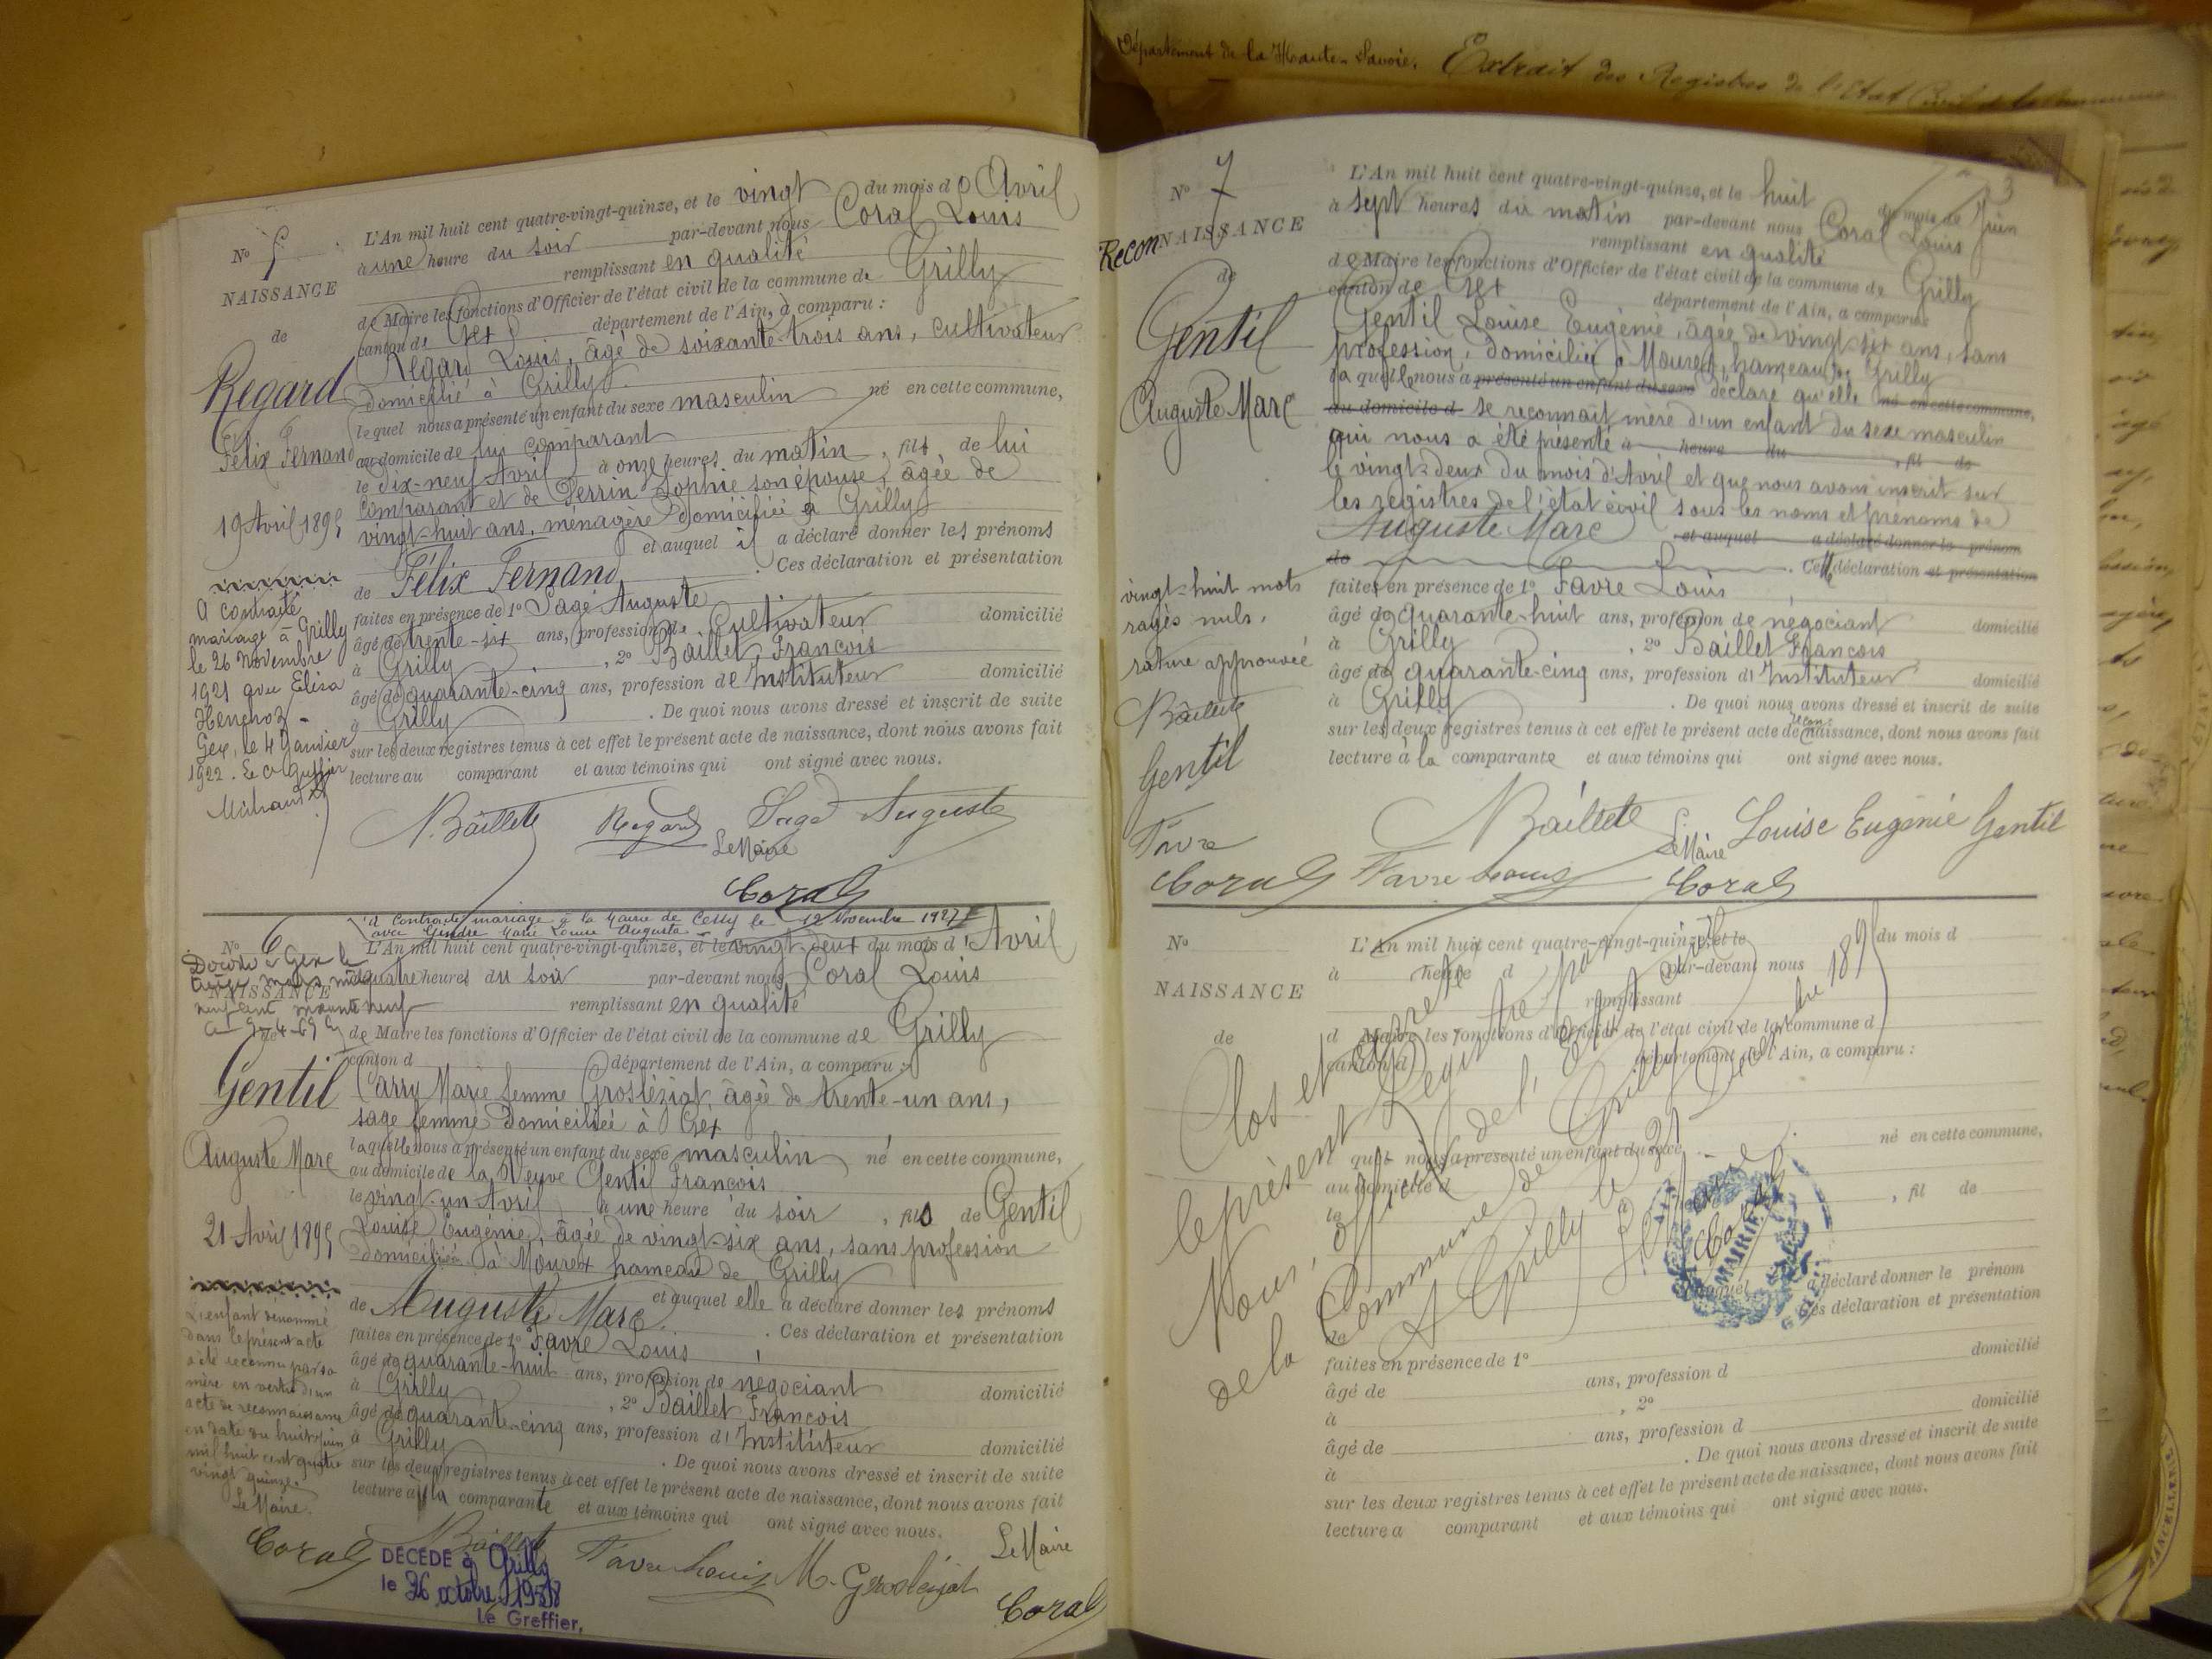 N° 5
NAISSANCE
de
Regard
Félix Fernand
19 Avril 1895
A contracté
mariage à Grilly
le 26 Novembre
1921 avec Elisa
Henchoz -
Gex, le 4 Janvier
1922. Le Greffier
L'An mil huit cent quatre-vingt-quinze, et le vingt du mois d'Avril
à une heure du soir par-devant nous Coral Louis
remplissant en qualité
de Maire les fonctions d'Officier de l'état civil de la commune de Grilly
canton de Gex département de l'Ain, a comparu :
Regard Louis, âgé de soixante-trois ans, cultivateur
domicilié à Grilly.
lequel nous a présenté un enfant du sexe masculin né en cette commune,
au domicile de lui comparant
le dix-neuf Avril à onze heures du matin, fils de lui
comparant et de Perrin Sophie son épouse, âgée de
vingt-huit ans, ménagère domiciliée à Grilly
et auquel il a déclaré donner les prénoms
de Félix Fernand. Ces déclaration et présentation
faites en présence de 1° Sagé Auguste
âgé de trente-six ans, profession de Cultivateur domicilié
à Grilly, 2° Baillet François
âgé de quarante-cinq ans, profession de Instituteur domicilié
à Grilly. De quoi nous avons dressé et inscrit de suite
sur les deux registres tenus à cet effet le présent acte de naissance, dont nous avons fait
lecture au comparant et aux témoins qui ont signé avec nous.
Baillet Regard Sagé Auguste
Le Maire
Coral
a contracté mariage à la Mairie de Cessy le 12 Novembre 1927
avec Gindre Marie Louise Augusta
N° 6
Décédé à Gex le
treize mars mil
neuf cent soixante neuf
NAISSANCE
de
Gentil
Auguste Marc
21 Avril 1895
L'enfant dénommé
dans le présent acte
a été reconnu par sa
mère en vertu d'un
acte de reconnaissance
en date du huit Juin
mil huit cent quatre
vingt quinze.
Le Maire.
Coral
L'An mil huit cent quatre-vingt-quinze, et le vingt-deux du mois d'Avril
à quatre heures du soir par-devant nous Coral Louis
remplissant en qualité
de Maire les fonctions d'Officier de l'état civil de la commune de Grilly
canton d département de l'Ain, a comparu :
Carry Marie femme Grosléziat, âgée de trente-un ans,
sage femme domiciliée à Gex
laquelle nous a présenté un enfant du sexe masculin né en cette commune,
au domicile de la Veuve Gentil François
le vingt-un Avril à une heure du soir, fils de Gentil
Louise Eugénie, âgée de vingt-six ans, sans profession
domiciliée à Mourex hameau de Grilly
et auquel elle a déclaré donner les prénoms
de Auguste Marc. Ces déclaration et présentation
faites en présence de 1° Favre Louis
âgé de quarante-huit ans, profession de négociant domicilié
à Grilly, 2° Baillet François
âgé de quarante-cinq ans, profession d'Instituteur domicilié
à Grilly. De quoi nous avons dressé et inscrit de suite
sur les deux registres tenus à cet effet le présent acte de naissance, dont nous avons fait
lecture à la comparante et aux témoins qui ont signé avec nous.
Baillet Favre Louis M. Grosléziat
Le Maire
Coral
DÉCÉDÉ à Grilly
le 26 octobre 1958
Le Greffier,
Département de la Haute-Savoie. Extrait des Registres de l'Etat Civil de la Commune
N° 7
ReconNAISSANCE
de
Gentil
Auguste Marc
vingt-huit mots
rayés nuls.
rature approuvée
Baillet
Gentil
Favre
Coral
L'An mil huit cent quatre-vingt-quinze, et le huit du mois de Juin
à sept heures du matin par-devant nous Coral Louis
remplissant en qualité
de Maire les fonctions d'Officier de l'état civil de la commune de Grilly
canton de Gex département de l'Ain, a comparu
Gentil Louise Eugénie, âgée de vingt-six ans, sans
profession, domiciliée à Mourex, hameau de Grilly
laquelle nous a présenté un enfant du sexe déclare qu'elle né en cette commune,
au domicile d se reconnait mère d'un enfant du sexe masculin
qui nous a été présenté à heure du, fil de
le vingt-deux du mois d'Avril et que nous avons inscrit sur
les registres de l'état civil sous les noms et prénoms de
Auguste Marc et auquel a déclaré donner le prénom
de. Cette déclaration et présentation
faites en présence de 1° Favre Louis
âgé de quarante-huit ans, profession de négociant domicilié
à Grilly, 2° Baillet François
âgé de quarante-cinq ans, profession d'Instituteur domicilié
à Grilly. De quoi nous avons dressé et inscrit de suite
sur les deux registres tenus à cet effet le présent acte de naissance, dont nous avons fait
lecture à la comparante et aux témoins qui ont signé avec nous.
Baillet Louise Eugénie Gentil
Le Maire
Favre Louis Coral
N°
NAISSANCE
de
L'An mil huit cent quatre-vingt-quinze, et le du mois d
à heure d par-devant nous
remplissant
d Maire les fonctions d'Officier de l'état civil de la commune d
canton d département de l'Ain, a comparu :
quel nous a présenté un enfant du sexe né en cette commune,
au domicile d
le à, fil de
et auquel a déclaré donner le prénom
de Ces déclaration et présentation
faites en présence de 1° domicilié
âgé de ans, profession d
à, 2° domicilié
âgé de ans, profession d
à. De quoi nous avons dressé et inscrit de suite
sur les deux registres tenus à cet effet le présent acte de naissance, dont nous avons fait
lecture a comparant et aux témoins qui ont signé avec nous.
Clos et arrêté
le présent Registre par
Nous, officier de l'Etat civil
de la Commune de Grilly
A Grilly le 31 Décembre 1895
Le Maire
Coral
MAIRIE